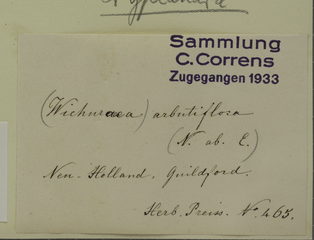 Sammlung
C. Correns
Zugegangen 1933
(Wichuraea) arbutiflosa
(N. ab. E.)
Neu-Holland. Guildford.
Herb. Preiss. No. 465.